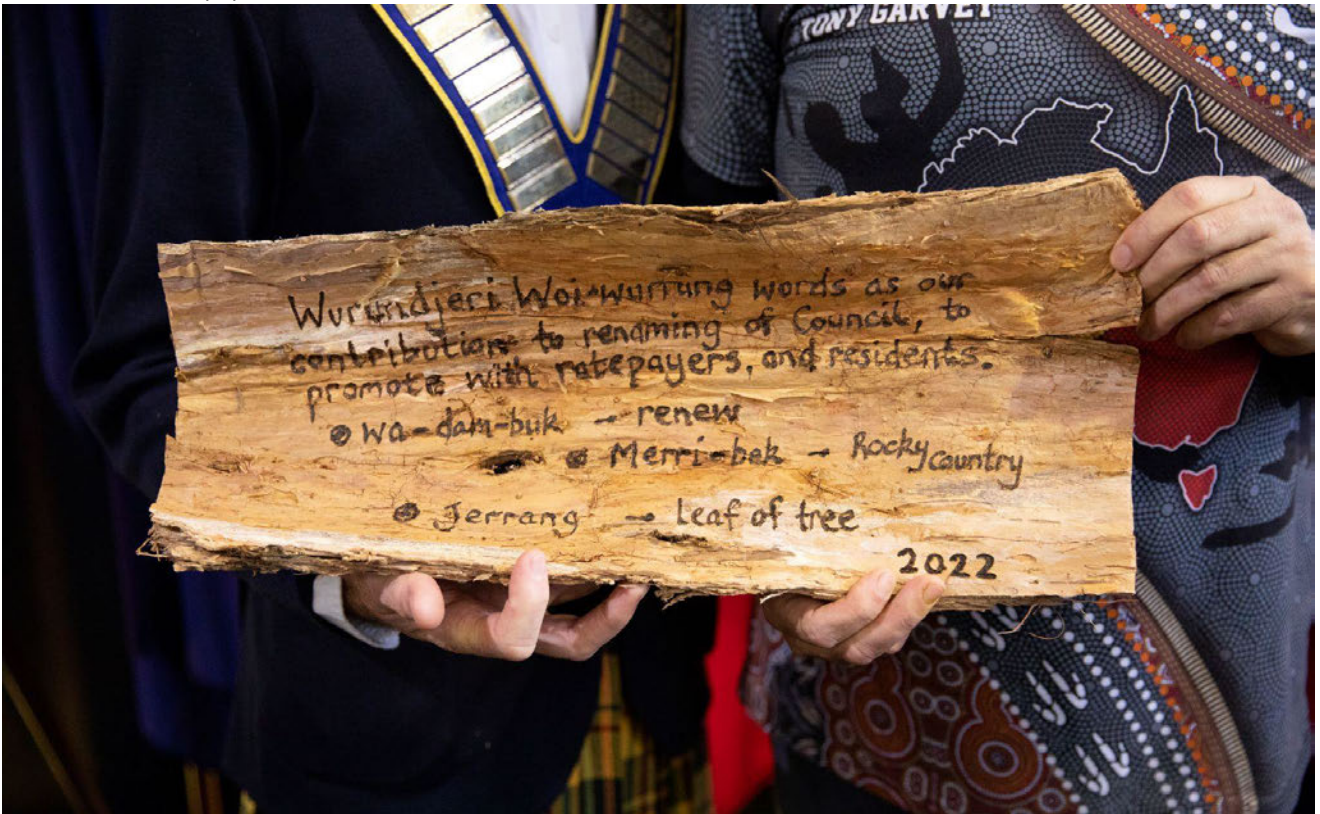 TONY GARVEY
Wurundjeri Woi-wurrung words as our
contribution to renaming of Council, to
promote with ratepayers, and residents.
wa-dam-buk - renew
Merri-bek - Rocky country
Jerrang - Leaf of tree
2022